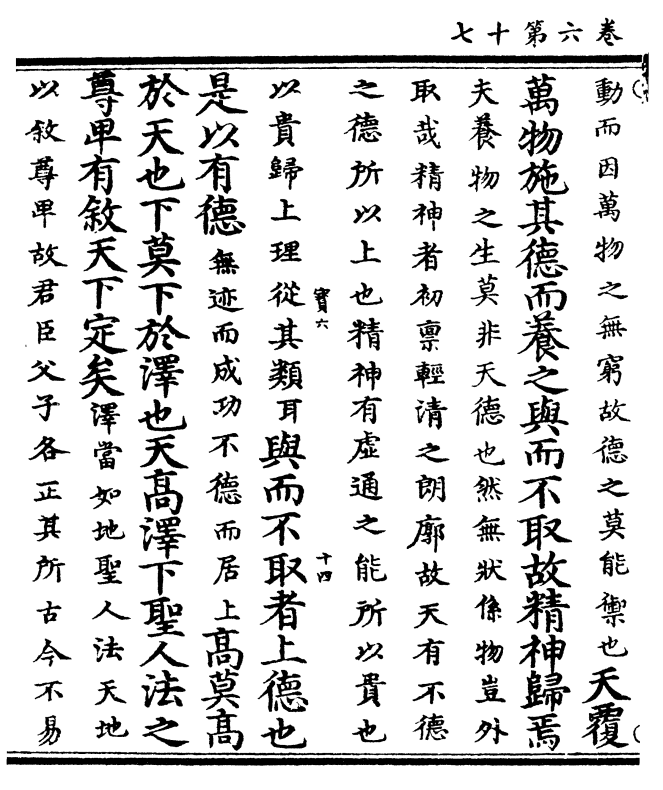 卷六第十七
動而因萬物之無窮故德之莫能禦也天覆
萬物施其德而養之與而不取故精神歸焉
夫養物之生莫非天德也然無狀係物豈外
取哉精神者初禀輕清之朗廓故天有不德
之德所以上也精神有虛通之能所以貴也
以貴歸上理從其類耳與而不取者上德也
寶六
十四
是以有德無迹而成功不德而居上高莫高
於天也下莫下於澤也天高澤下聖人法之
尊卑有敘天下定矣澤當如地聖人法天地
以敘尊卑故君臣父子各正其所古今不易